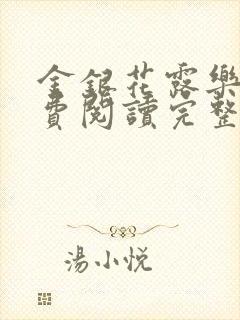 金銀花露樂
費閱讀完整
湯小悦